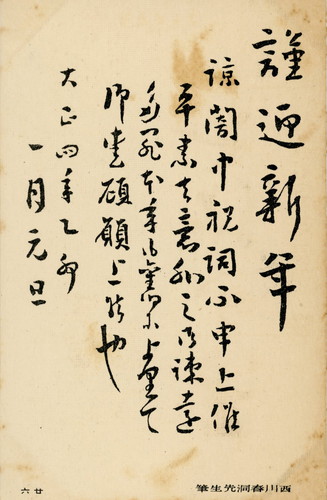 謹迎新年
諒闇中祝詞不申上候
平素 意外之御疎遠
多罪本年も舊
御愛顧願上候也
大正四年乙卯
一月元旦
西川春洞先生筆
廿六